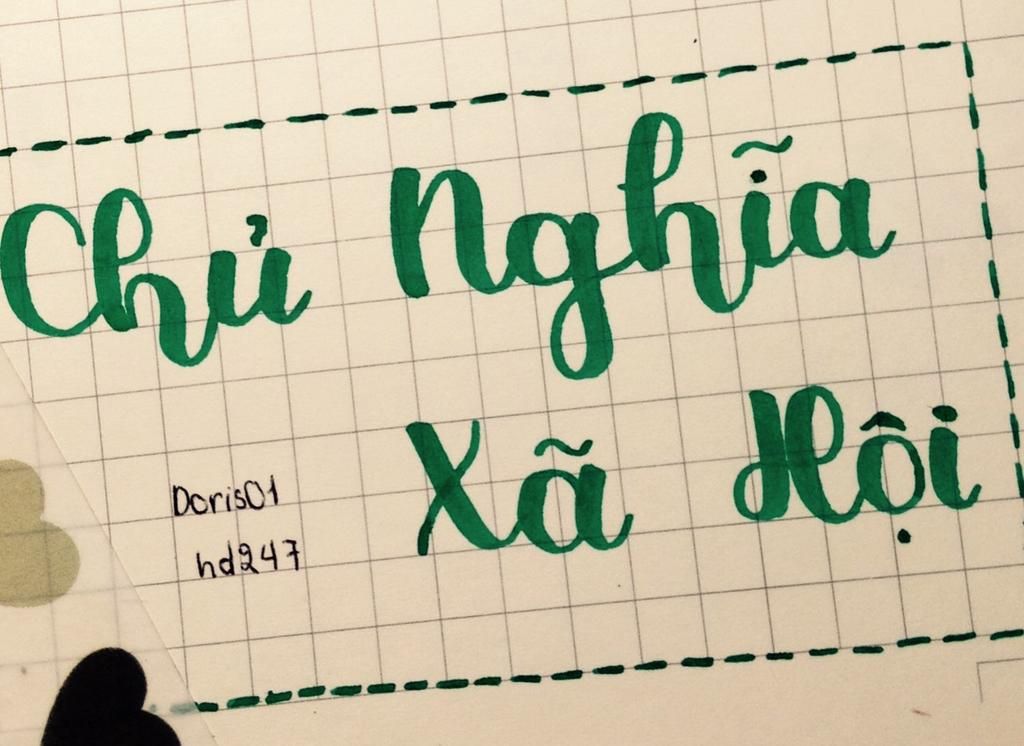 Chủ Nghĩa
Xã Hội
Doris01
hd247